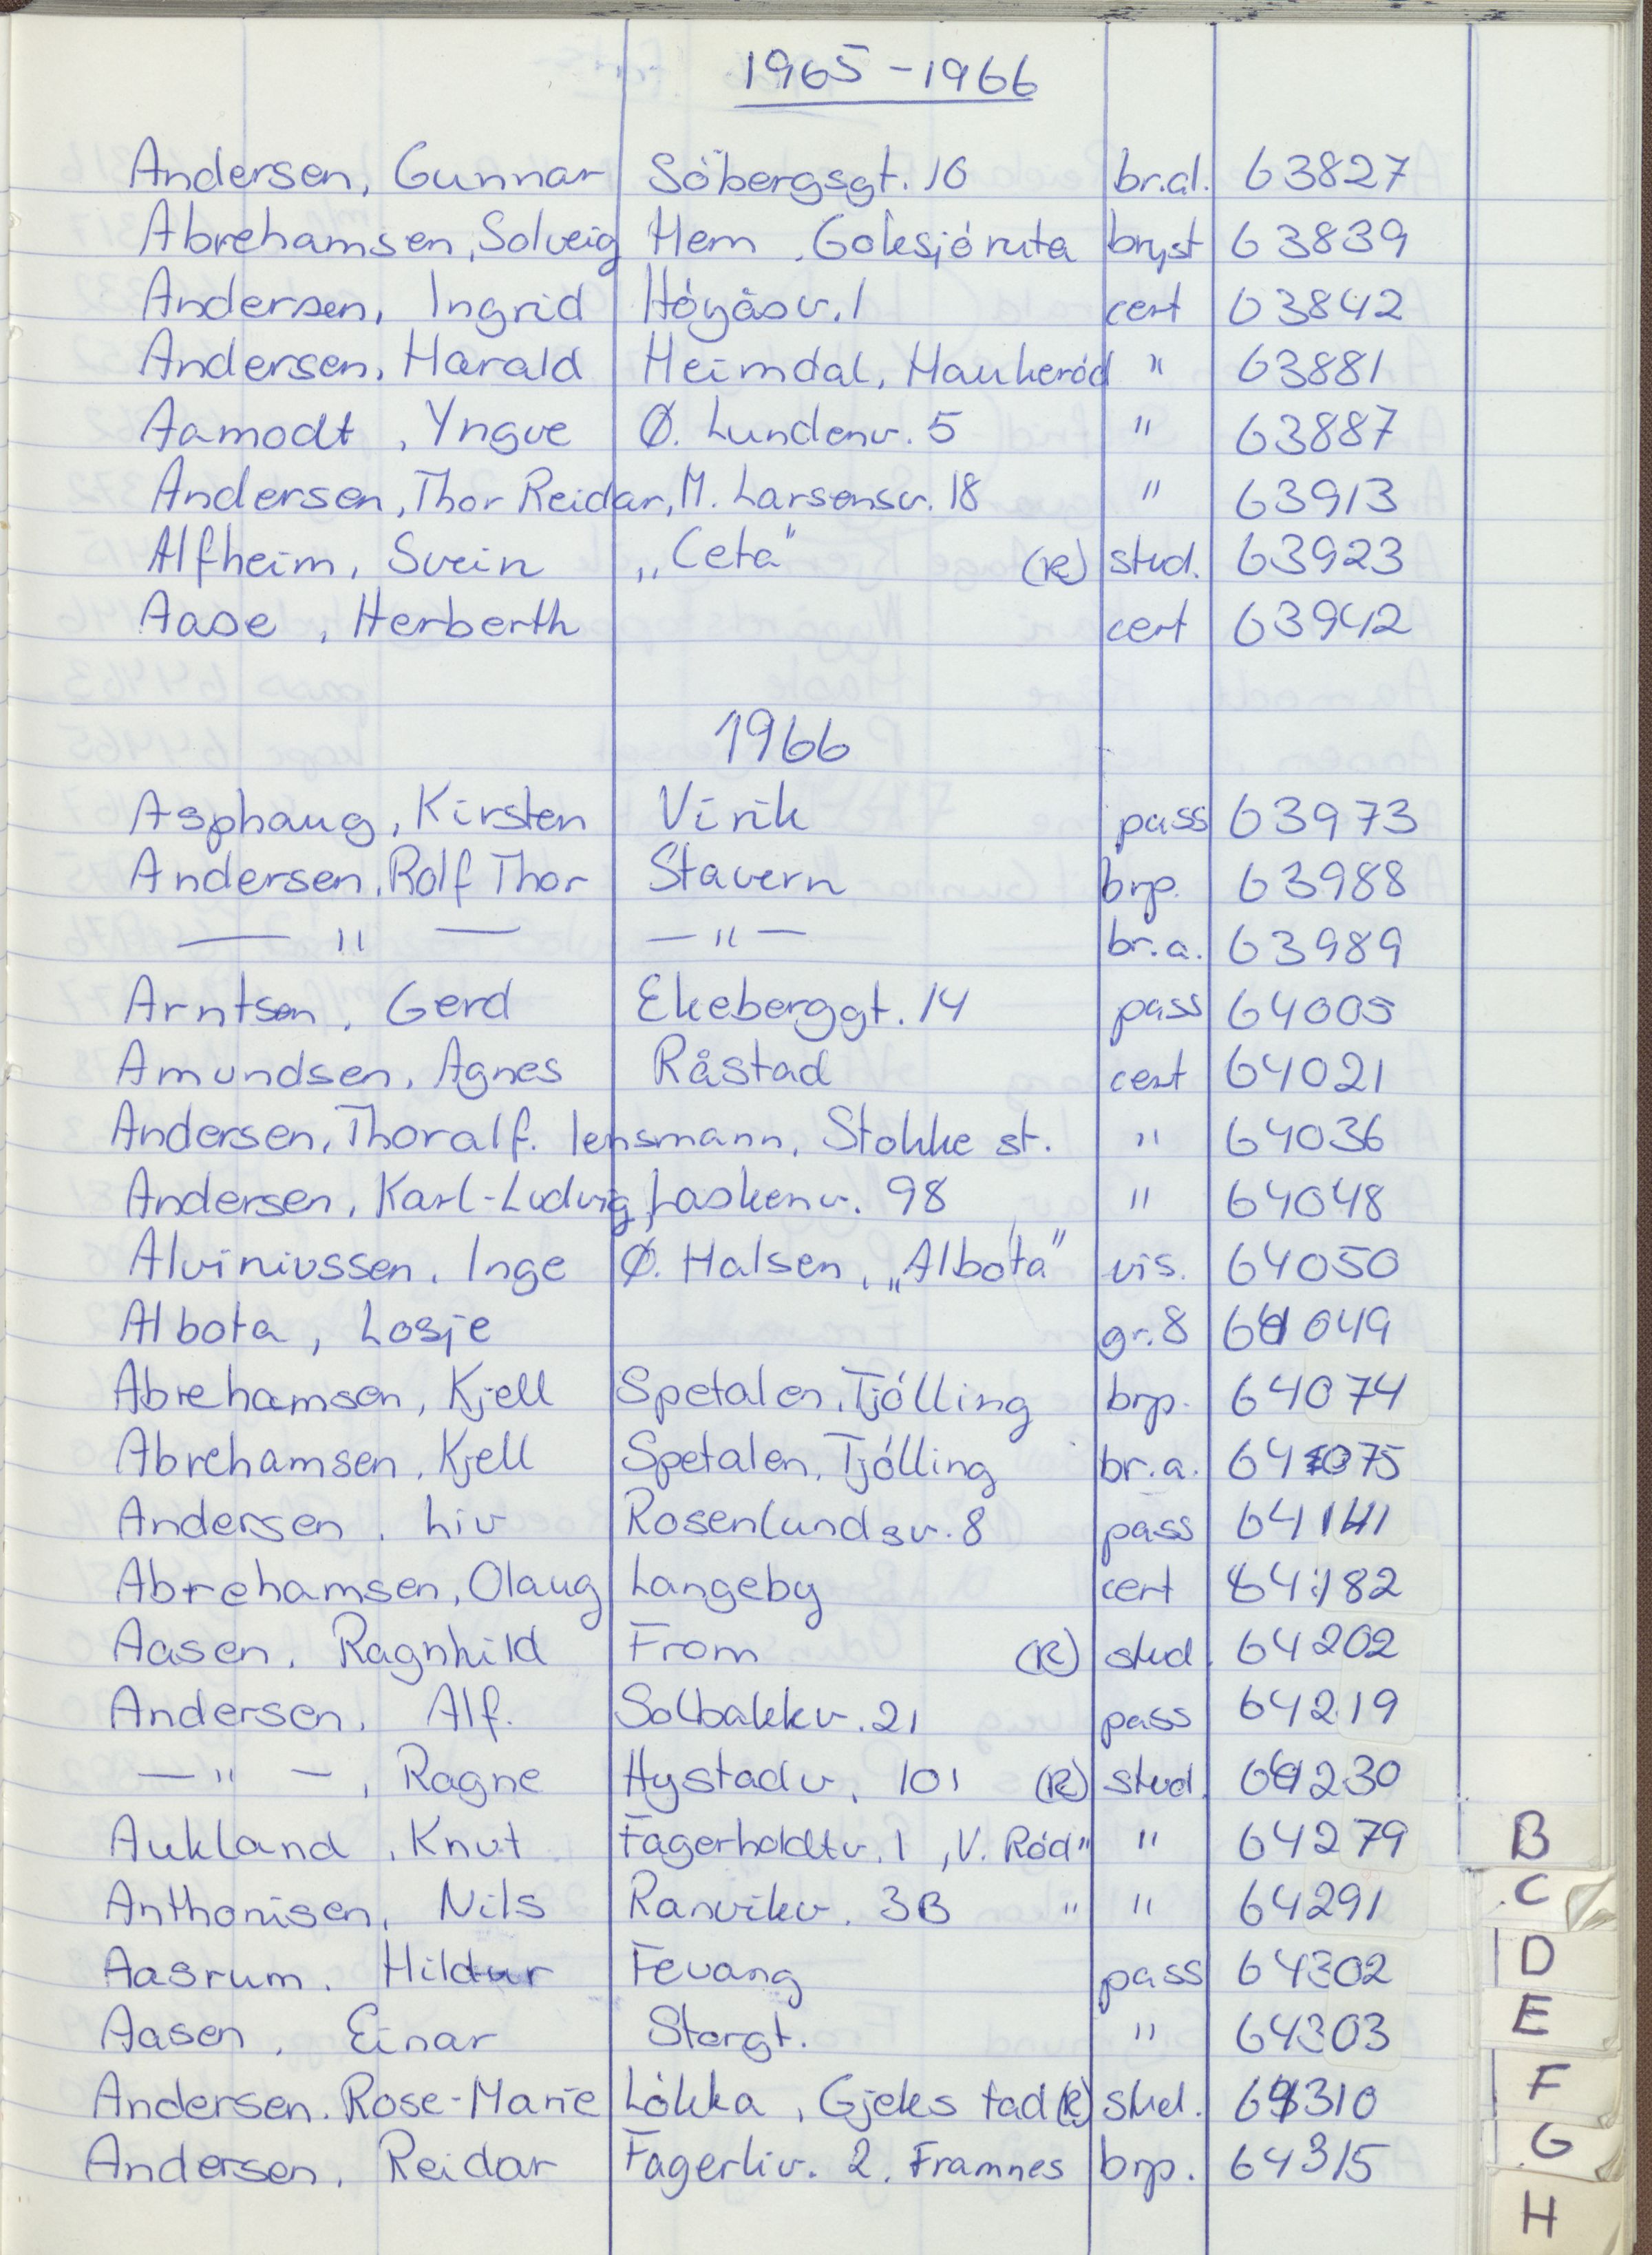 1965-1966
Andersen, Gunnar Söbergsgt. 10 br.al. 63827
Abrehamsen, Solveig Hem, Gokesjóruta bryst 63839
Andersen, Ingrid Höyåsv. 1 cert 63842
Andersen, Harald Heimdal, Haukeród " 63881
Aamodt, Yngve Ø. Lundenv. 5 " 63887
Andersen, Thor Reidar, M. Larsensv. 18 " 63913
Alfheim, Svein „Ceta" (R) stud. 63923
Aase, Herberth cert 63942
1966
Asphaug, Kirsten Virik pass 63973
Andersen, Rolf Thor Stavern brp. 63988
— " — — " — br.a. 63989
Arntsen, Gerd Ekeberggt. 14 pass 64005
Amundsen, Agnes Råstad cert 64021
Andersen, Thoralf. lensmann, Stokke st. " 64036
Andersen, Karl-Ludvig Laskenv. 98 " 64048
Alviniussen, Inge Ø. Halsen, „Albota" vis. 64050
Albota, Losje gr. 8 64049
Abrehamsen, Kjell Spetalen, Tjólling brp. 64074
Abrehamsen, Kjell Spetalen, Tjólling br.a. 64075
Andersen, Liv Rosenlundsv. 8 pass 64141
Abrehamsen, Olaug Langeby cert 64182
Aasen, Ragnhild From (R) stud. 64202
Andersen, Alf. Solbakkv. 21 pass 64219
— " —, Ragne Hystadv. 101 (R) stud. 64230
Aukland, Knut Fagerholdtv. 1, V. Ród " " 64279
Anthonisen, Nils Ranvikv. 3B " " 64291
Aasrum, Hildur Fevang pass 64302
Aasen, Einar Storgt. " 64303
Andersen, Rose-Marie Lókka, Gjekstad (R) stud. 64310
Andersen, Reidar Fagerliv. 2, Framnes brp. 64315
B
C
D
E
F
G
H